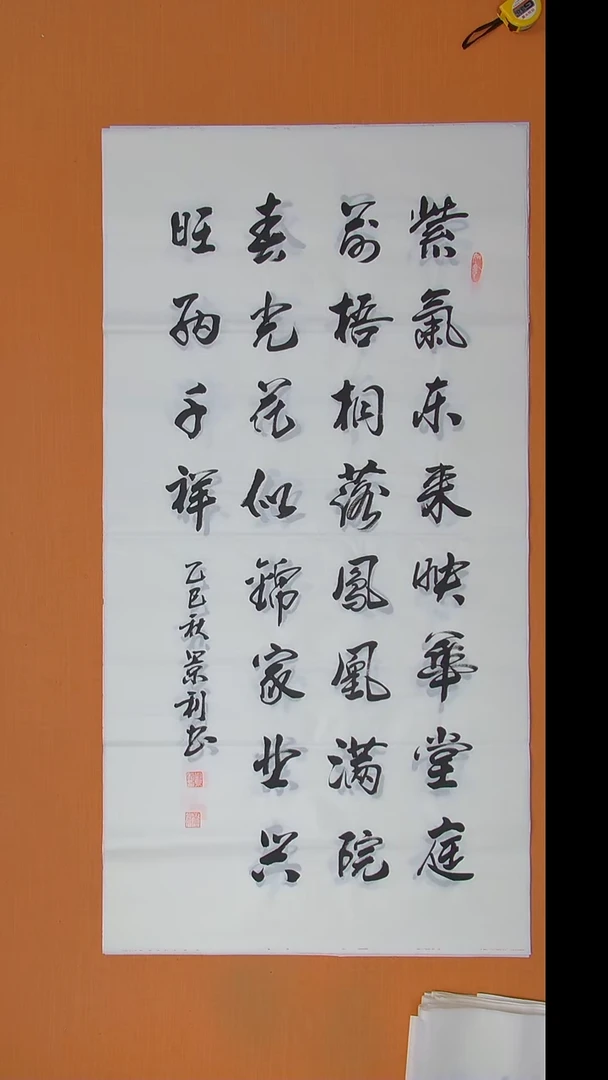 紫氣东来映華堂庭
前梧桐落鳳凰满院
春光花似锦家业兴
旺纳千祥
乙巳秋荣利书